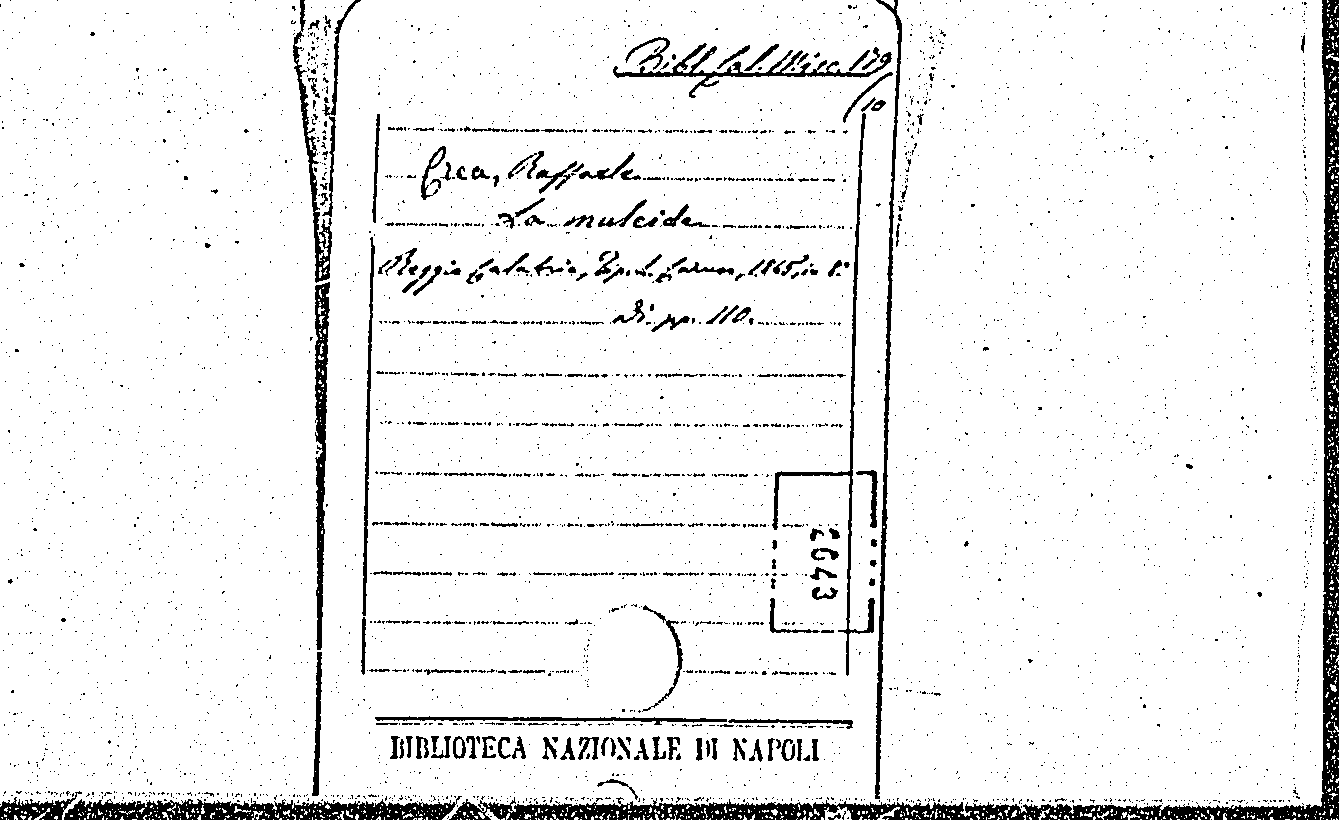 Bibl. Cal. Misc. 179
/10
Crea, Raffaele
La mulcide
Reggio Calabria, Tip. L. Caruso, 1865, in 8°
di pp. 110.
2643
BIBLIOTECA NAZIONALE DI NAPOLI